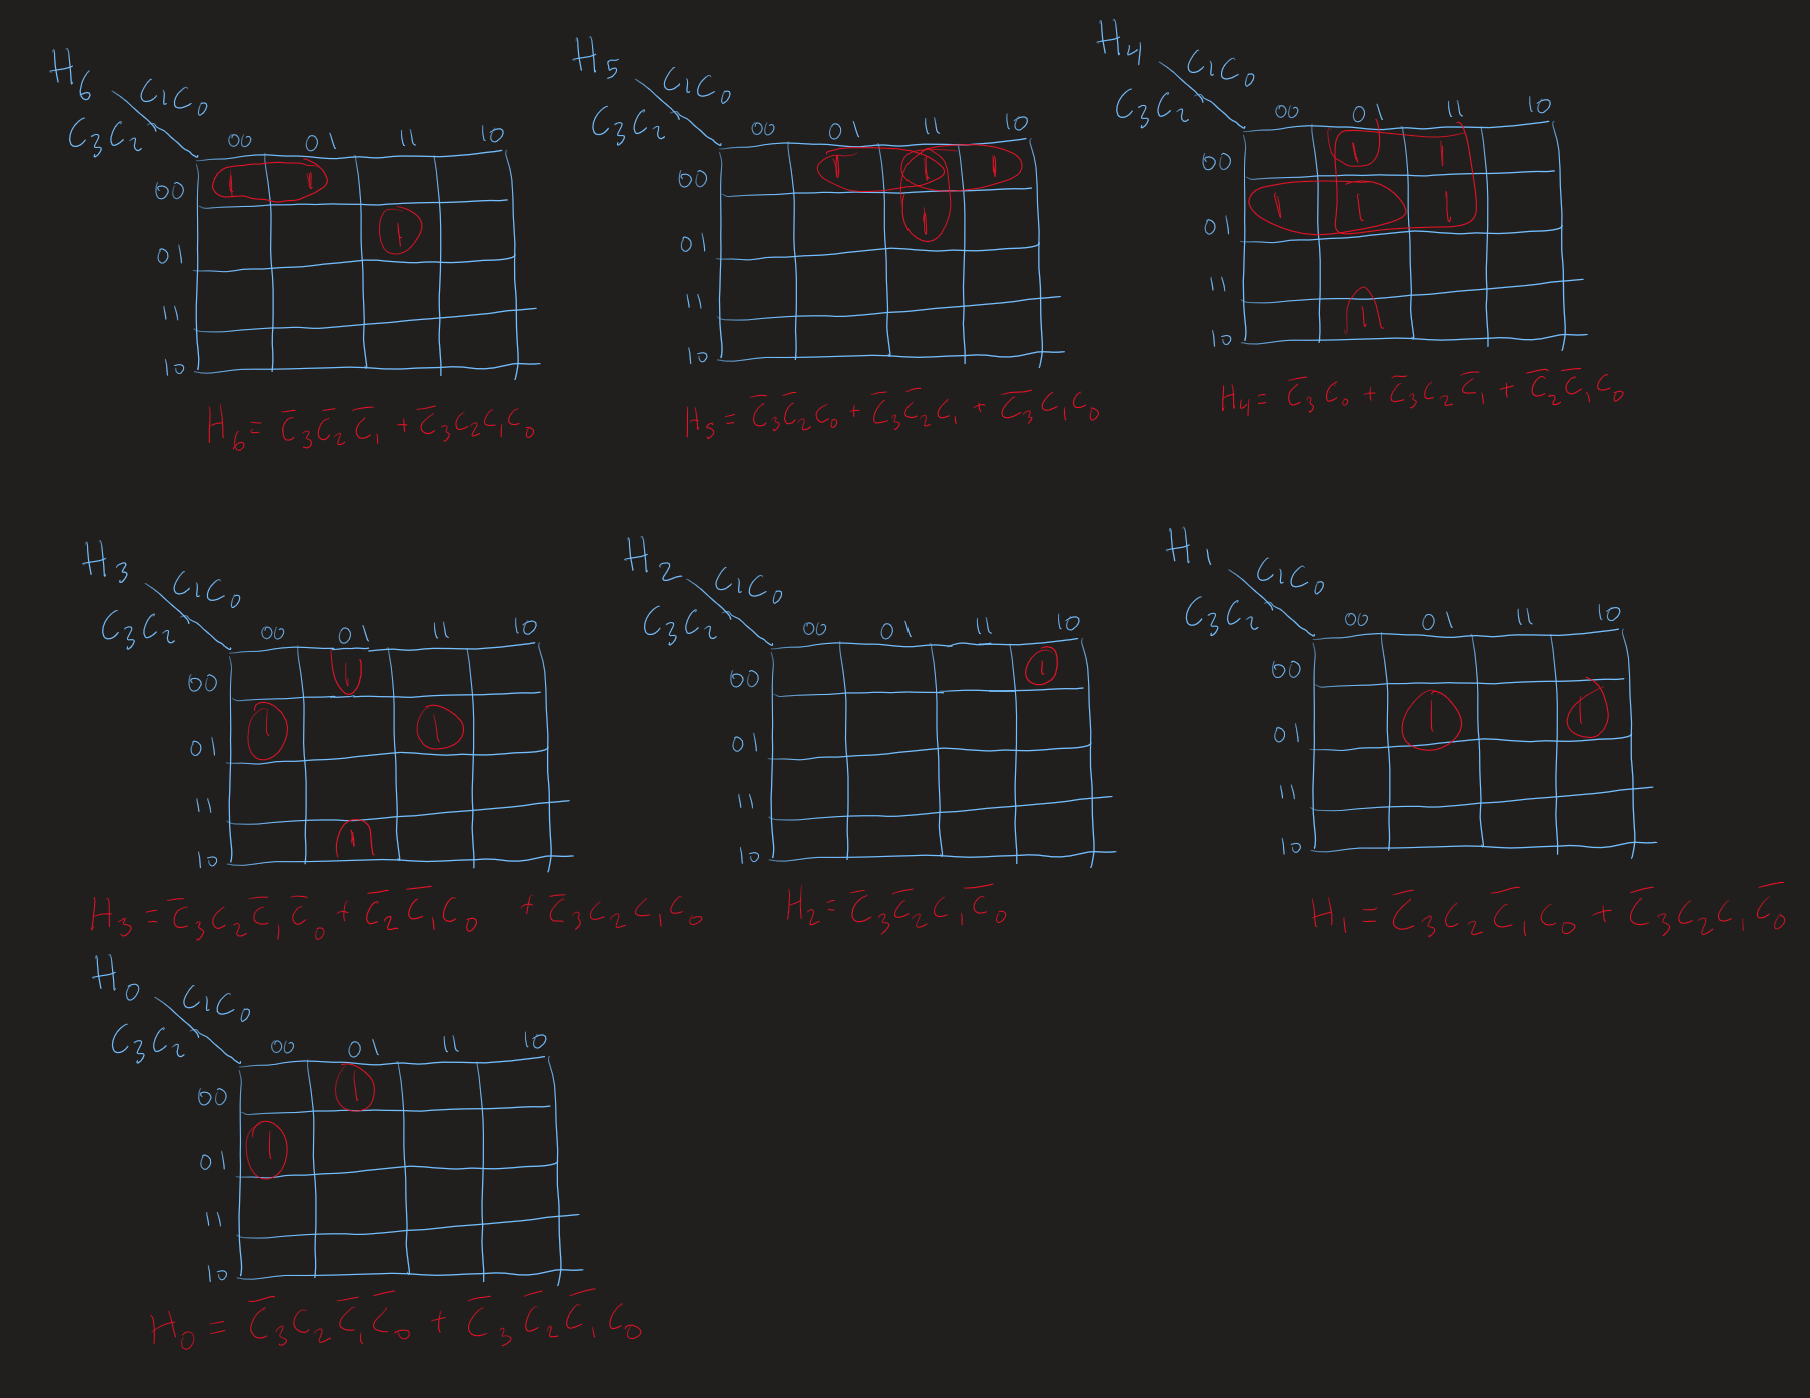 H₆ C₁C₀
C₃C₂ 00 01 11 10
00 1 1
01 1
11
10
H₆ = C̅₃C̅₂C̅₁ + C̅₃C₂C₁C₀
H₅ C₁C₀
C₃C₂ 00 01 11 10
00 1 1 1
01 1
11
10
H₅ = C̅₃C̅₂C₀ + C̅₃C̅₂C₁ + C̅₃C₁C₀
H₄ C₁C₀
C₃C₂ 00 01 11 10
00 1 1
01 1 1 1
11
10 1
H₄ = C̅₃C₀ + C̅₃C₂C̅₁ + C̅₂C̅₁C₀
H₃ C₁C₀
C₃C₂ 00 01 11 10
00 1
01 1 1
11
10 1
H₃ = C̅₃C₂C̅₁C̅₀ + C̅₂C̅₁C₀ + C̅₃C₂C₁C₀
H₂ C₁C₀
C₃C₂ 00 01 11 10
00 1
01
11
10
H₂ = C̅₃C̅₂C₁C̅₀
H₁ C₁C₀
C₃C₂ 00 01 11 10
00
01 1 1
11
10
H₁ = C̅₃C₂C̅₁C₀ + C̅₃C₂C₁C̅₀
H₀ C₁C₀
C₃C₂ 00 01 11 10
00 1
01 1
11
10
H₀ = C̅₃C₂C̅₁C̅₀ + C̅₃C̅₂C̅₁C₀